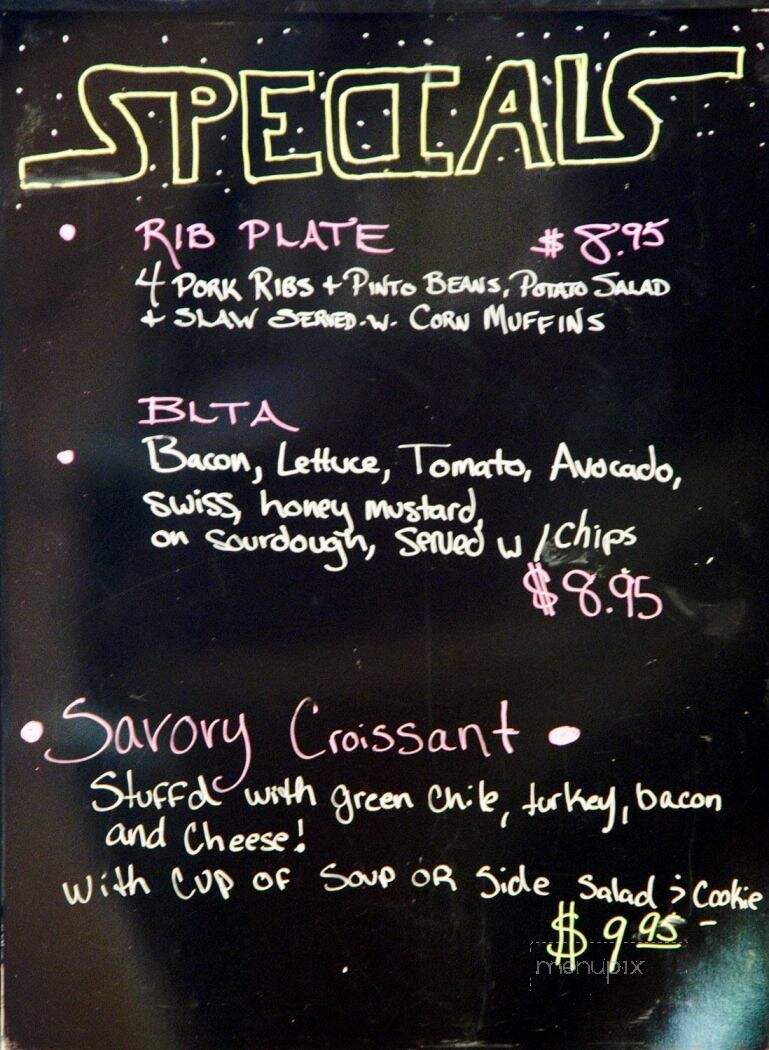 SPECIALS
• RIB PLATE $8.95
4 PORK RIBS + PINTO BEANS, POTATO SALAD
+ SLAW SERVED -W- CORN MUFFINS
BLTA
• Bacon, Lettuce, Tomato, Avocado,
swiss, honey mustard,
on sourdough, Served w/chips
$8.95
• Savory Croissant •
Stuffd with green chile, turkey, bacon
and Cheese!
with CUP OF SOUP OR Side Salad & Cookie
$9.95 -
menupix